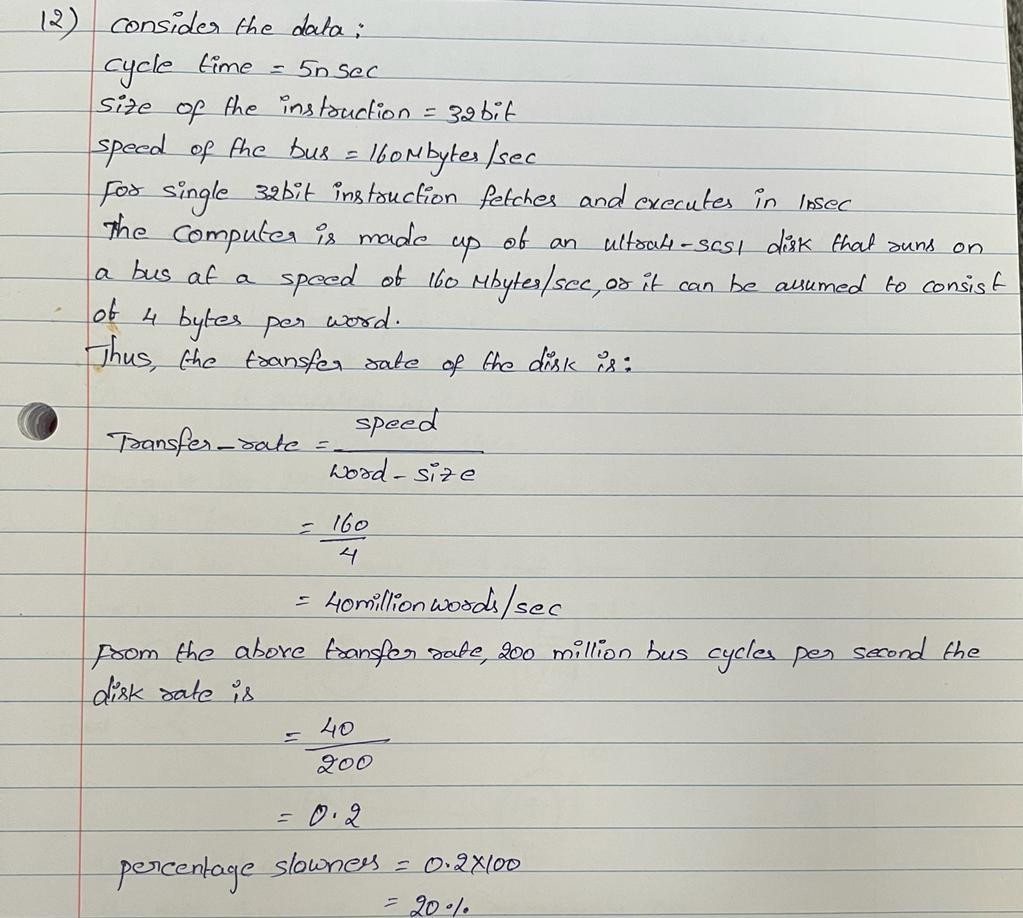 12) consider the data;
cycle time = 5n sec
size of the instruction = 32bit
speed of the bus = 160Mbytes/sec
For single 32bit instruction fetches and executes in 1nsec
The computer is made up of an ultra4-scsi disk that runs on
a bus at a speed of 160 Mbytes/sec, or it can be assumed to consist
of 4 bytes per word.
Thus, the transfer rate of the disk is:
Transfer-rate = speed
word-size
= 160
4
= 40million words/sec
From the above transfer rate, 200 million bus cycles per second the
disk rate is
= 40
200
= 0.2
percentage slowness = 0.2x100
= 20%